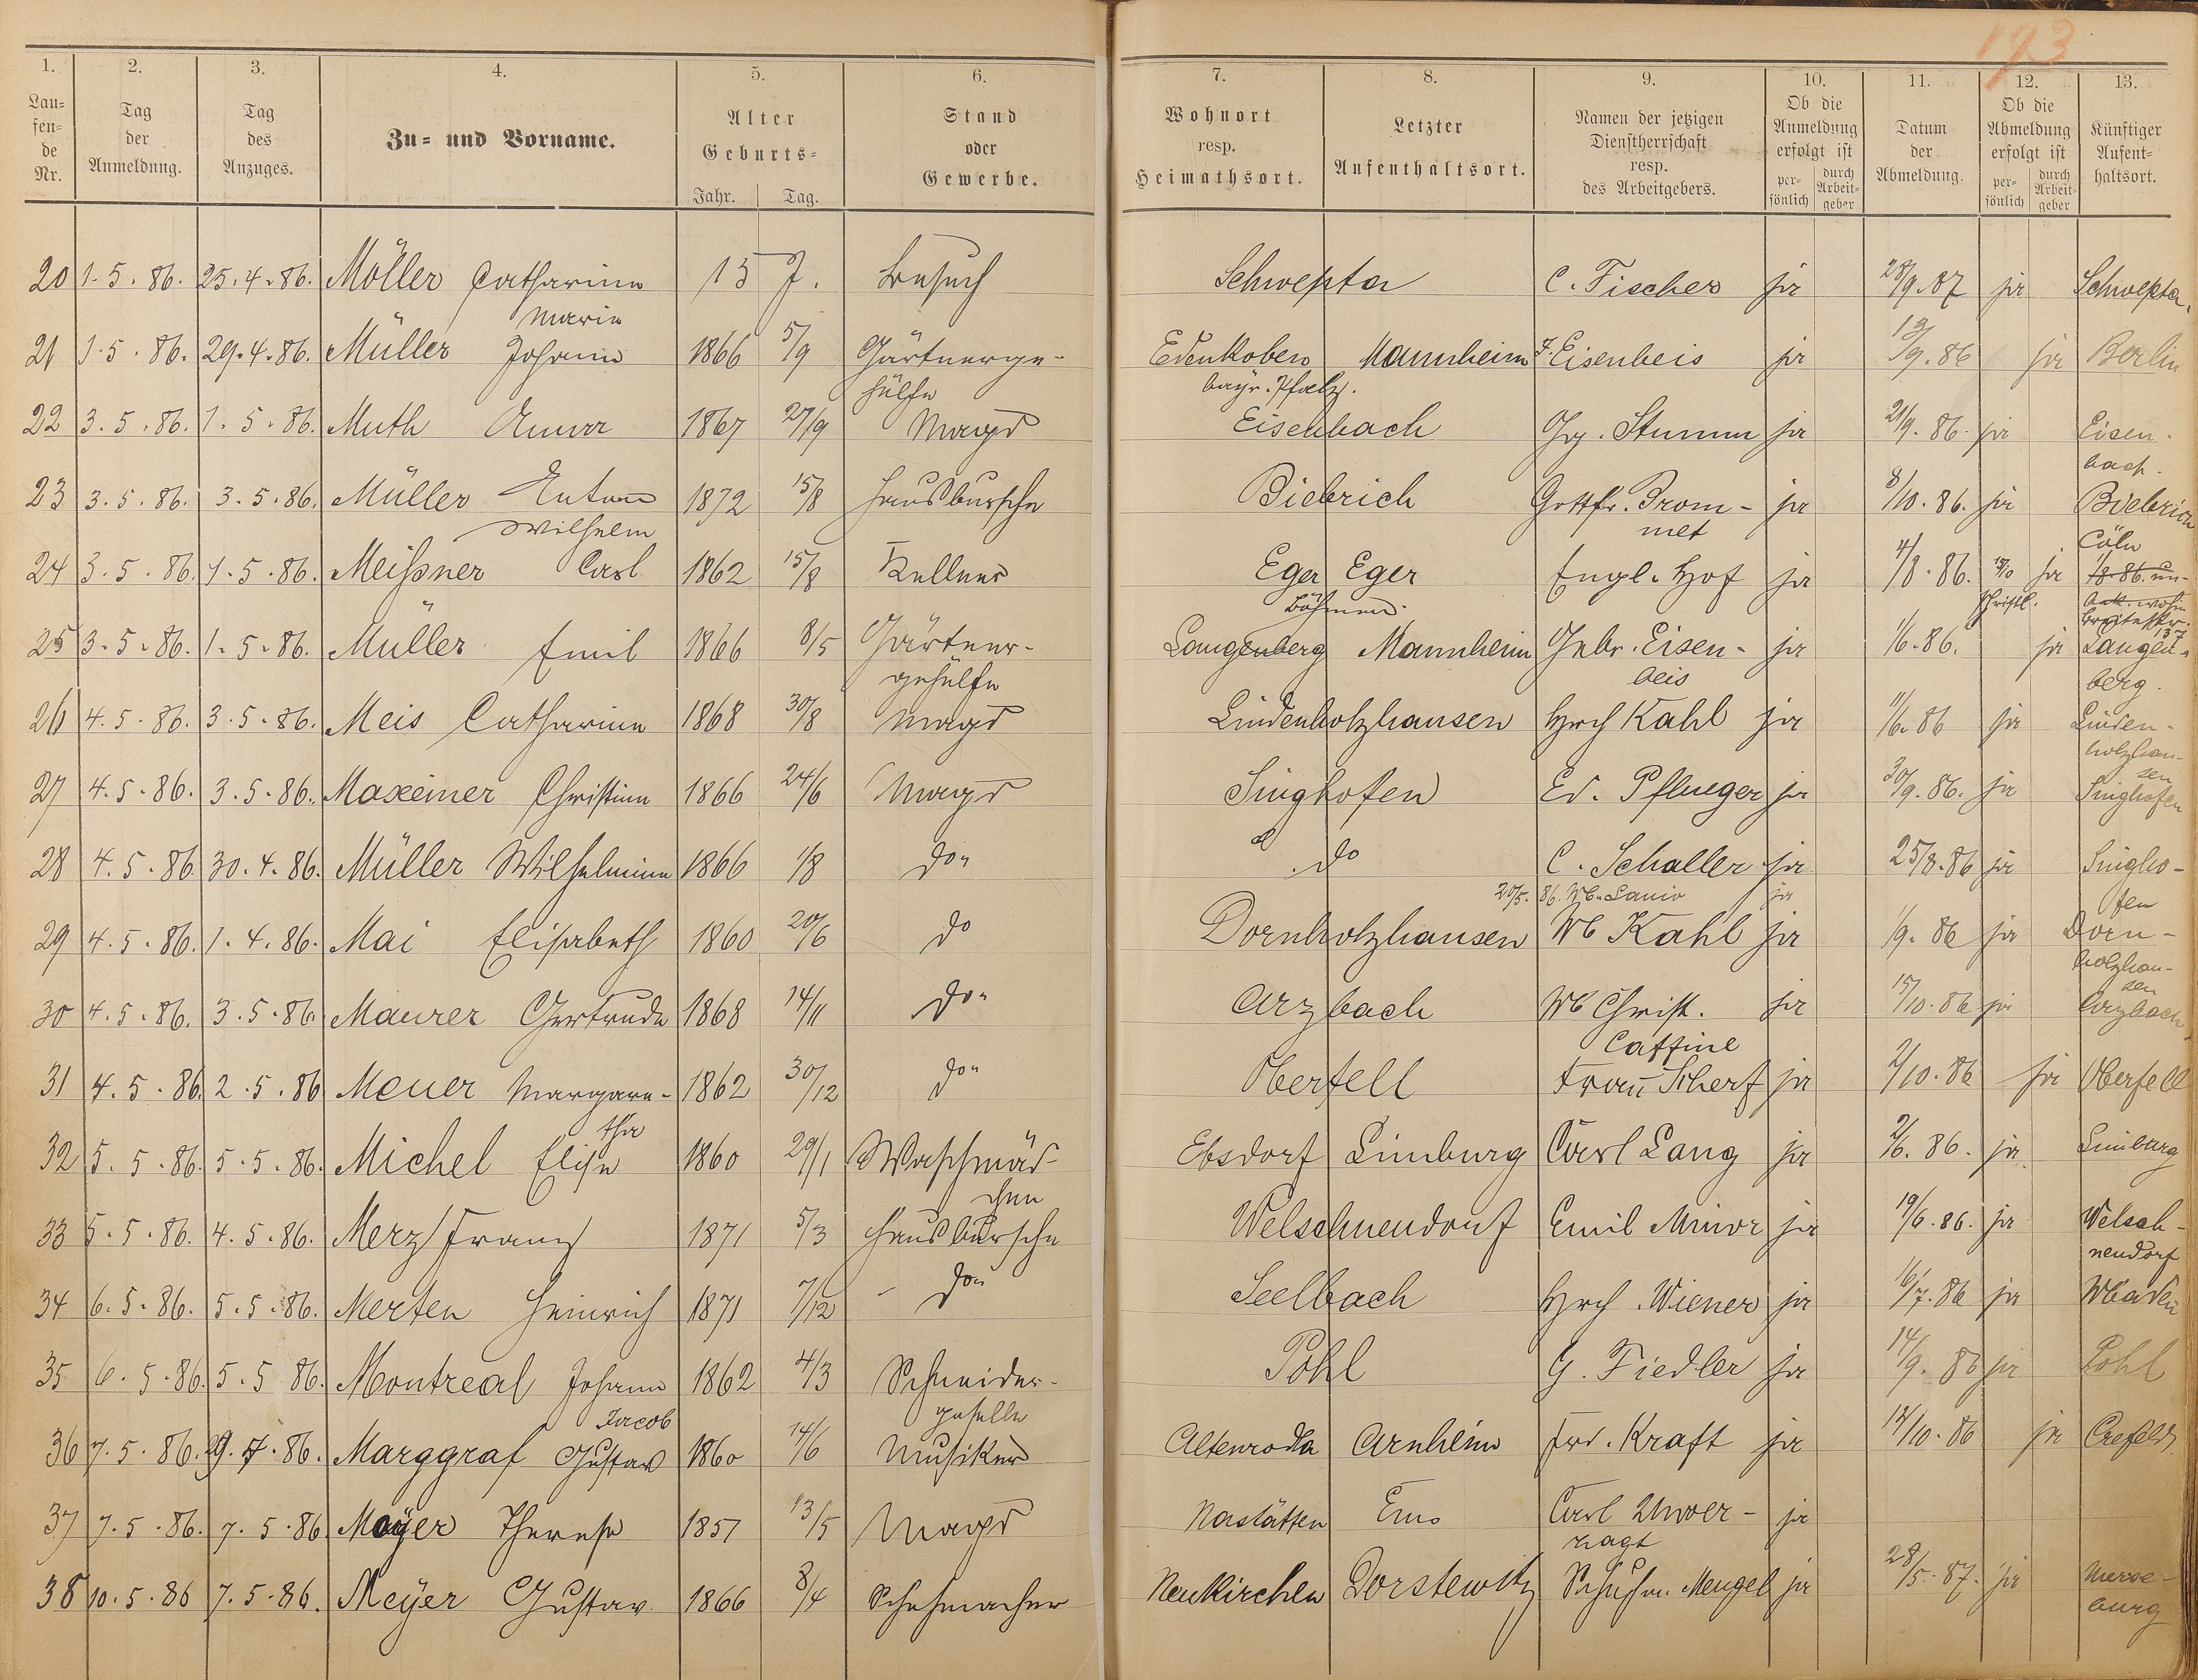 193
1. 2. 3. 4. 5. 6. 7. 8. 9. 10. 11. 12. 13.
Lau-fen-de Nr. Tag der Anmeldung. Tag des Anzuges. Zu- und Vorname. Alter Geburts- Jahr. Tag. Stand oder Gewerbe. Wohnort resp. Heimathsort. Letzter Aufenthaltsort. Namen der jetzigen Dienstherrschaft resp. des Arbeitgebers. Ob die Anmeldung erfolgt ist per-sönlich durch Arbeit-geber Datum der Abmeldung. Ob die Abmeldung erfolgt ist per-sönlich durch Arbeit-geber Künftiger Aufent-haltsort.
20 1.5.86. 25.4.86. Möller Catharina 15 J. Besuch C. Fischer ja 28/9.87 ja
Maria
21 1.5.86. 29.4.86. Müller Johann 1866 5/9 Gärtnerge- Edenkoben Mannheim F. Eisenbeis ja 12/9.86 ja Berlin
hülfe bayr. Pfalz.
22 3.5.86. 1.5.86. Muth Anna 1867 27/9 Magd Eisenbach Jg. Stumm ja 21/9.86. ja Eisen-
bach.
23 3.5.86. 3.5.86. Müller Anton 1872 15/8 Hausbursche Biebrich Gottfr. Brom- ja 8/10.86. ja Biebrich
Wilhelm met Cöln
24 3.5.86. 1.5.86. Meißner Carl 1862 15/8 Kellner Eger Eger Engl. Hof ja 4/8.86. 15/10 ja 1/8.86. un-
Böhmen. schriftl. bek. wohin
25 3.5.86. 1.5.86. Müller Emil 1866 8/5 Gärtner- Langenberg Mannheim Gebr. Eisen- ja 1/6.86. ja Langen-
gehülfe beis berg.
26 4.5.86. 3.5.86. Meis Catharina 1868 30/8 Magd Lindenholzhausen Hrch Kahl ja 1/6.86 ja Linden-
holzhau-
sen
27 4.5.86. 3.5.86. Maxeiner Christine 1866 24/6 Magd Singhofen Ed. Pflueger ja 30/9.86. ja Singhofen
28 4.5.86 30.4.86. Müller Wilhelmine 1866 1/8 do do C. Schaller ja 25/8.86 ja Singho-
20/5. 86. ja fen
29 4.5.86. 1.4.86. Mai Elisabeth 1860 20/6 do Dornholzhausen Wb Kahl ja 1/9.86 ja Dorn-
holzhau-
sen
30 4.5.86. 3.5.86 Maurer Gertrude 1868 14/11 do Arzbach Wb Christ. ja 15/10.86 ja Arzbach
Caffine
31 4.5.86 2.5.86 Meuer Margare- 1862 30/12 do Oberfell Frau Scherf ja 2/10.86 ja Oberfell
tha
32 5.5.86 5.5.86. Michel Elise 1860 29/1 Waschmäd- Ebsdorf Limburg Carl Lang ja 2/6.86. ja Limburg
chen
33 5.5.86. 4.5.86. Merz Franz 1871 5/3 Hausbursche Welschneudorf Emil Minor ja 19/6.86. ja Welsch-
neudorf
34 6.5.86. 5.5.86. Merten Heinrich 1871 7/12 do Seelbach Hrch. Wiener ja 16/7.86 ja Wbaden
35 6.5.86 5.5 86. Montreal Johann 1862 4/3 Schneider- Pohl G. Fiedler ja 14/9.86 ja Pohl
Jacob geselle
36 7.5.86. 29.4.86. Marggraf Gustav 1860 14/6 Musiker Altenroda Arnheim Frd. Kraft ja 12/10.86 ja Crefeld.
37 7.5.86. 7.5.86 Mayer Therese 1857 13/5 Magd Nastätten Ems Carl Unver- ja
zagt
38 10.5.86 7.5.86. Meyer Gustav 1866 8/4 Schuhmacher Neukirchen Dorstewitz Schuhm. Mengel ja 28/5.87. ja Merse-
burg